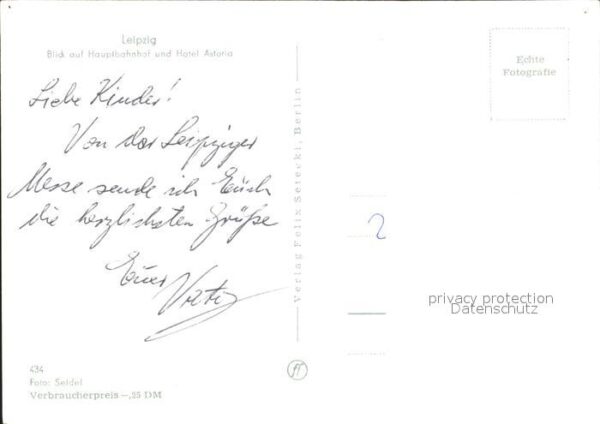 Leipzig
Blick auf Hauptbahnhof und Hotel Astoria
Liebe Kinder!
Von der Leipziger
Messe sende ich Euch
die herzlichsten Grüße
Euer
Echte
Fotografie
Verlag Felix Setecki, Berlin
2
privacy protection
Datenschutz
434
Foto: Seidel
Verbraucherpreis -,25 DM